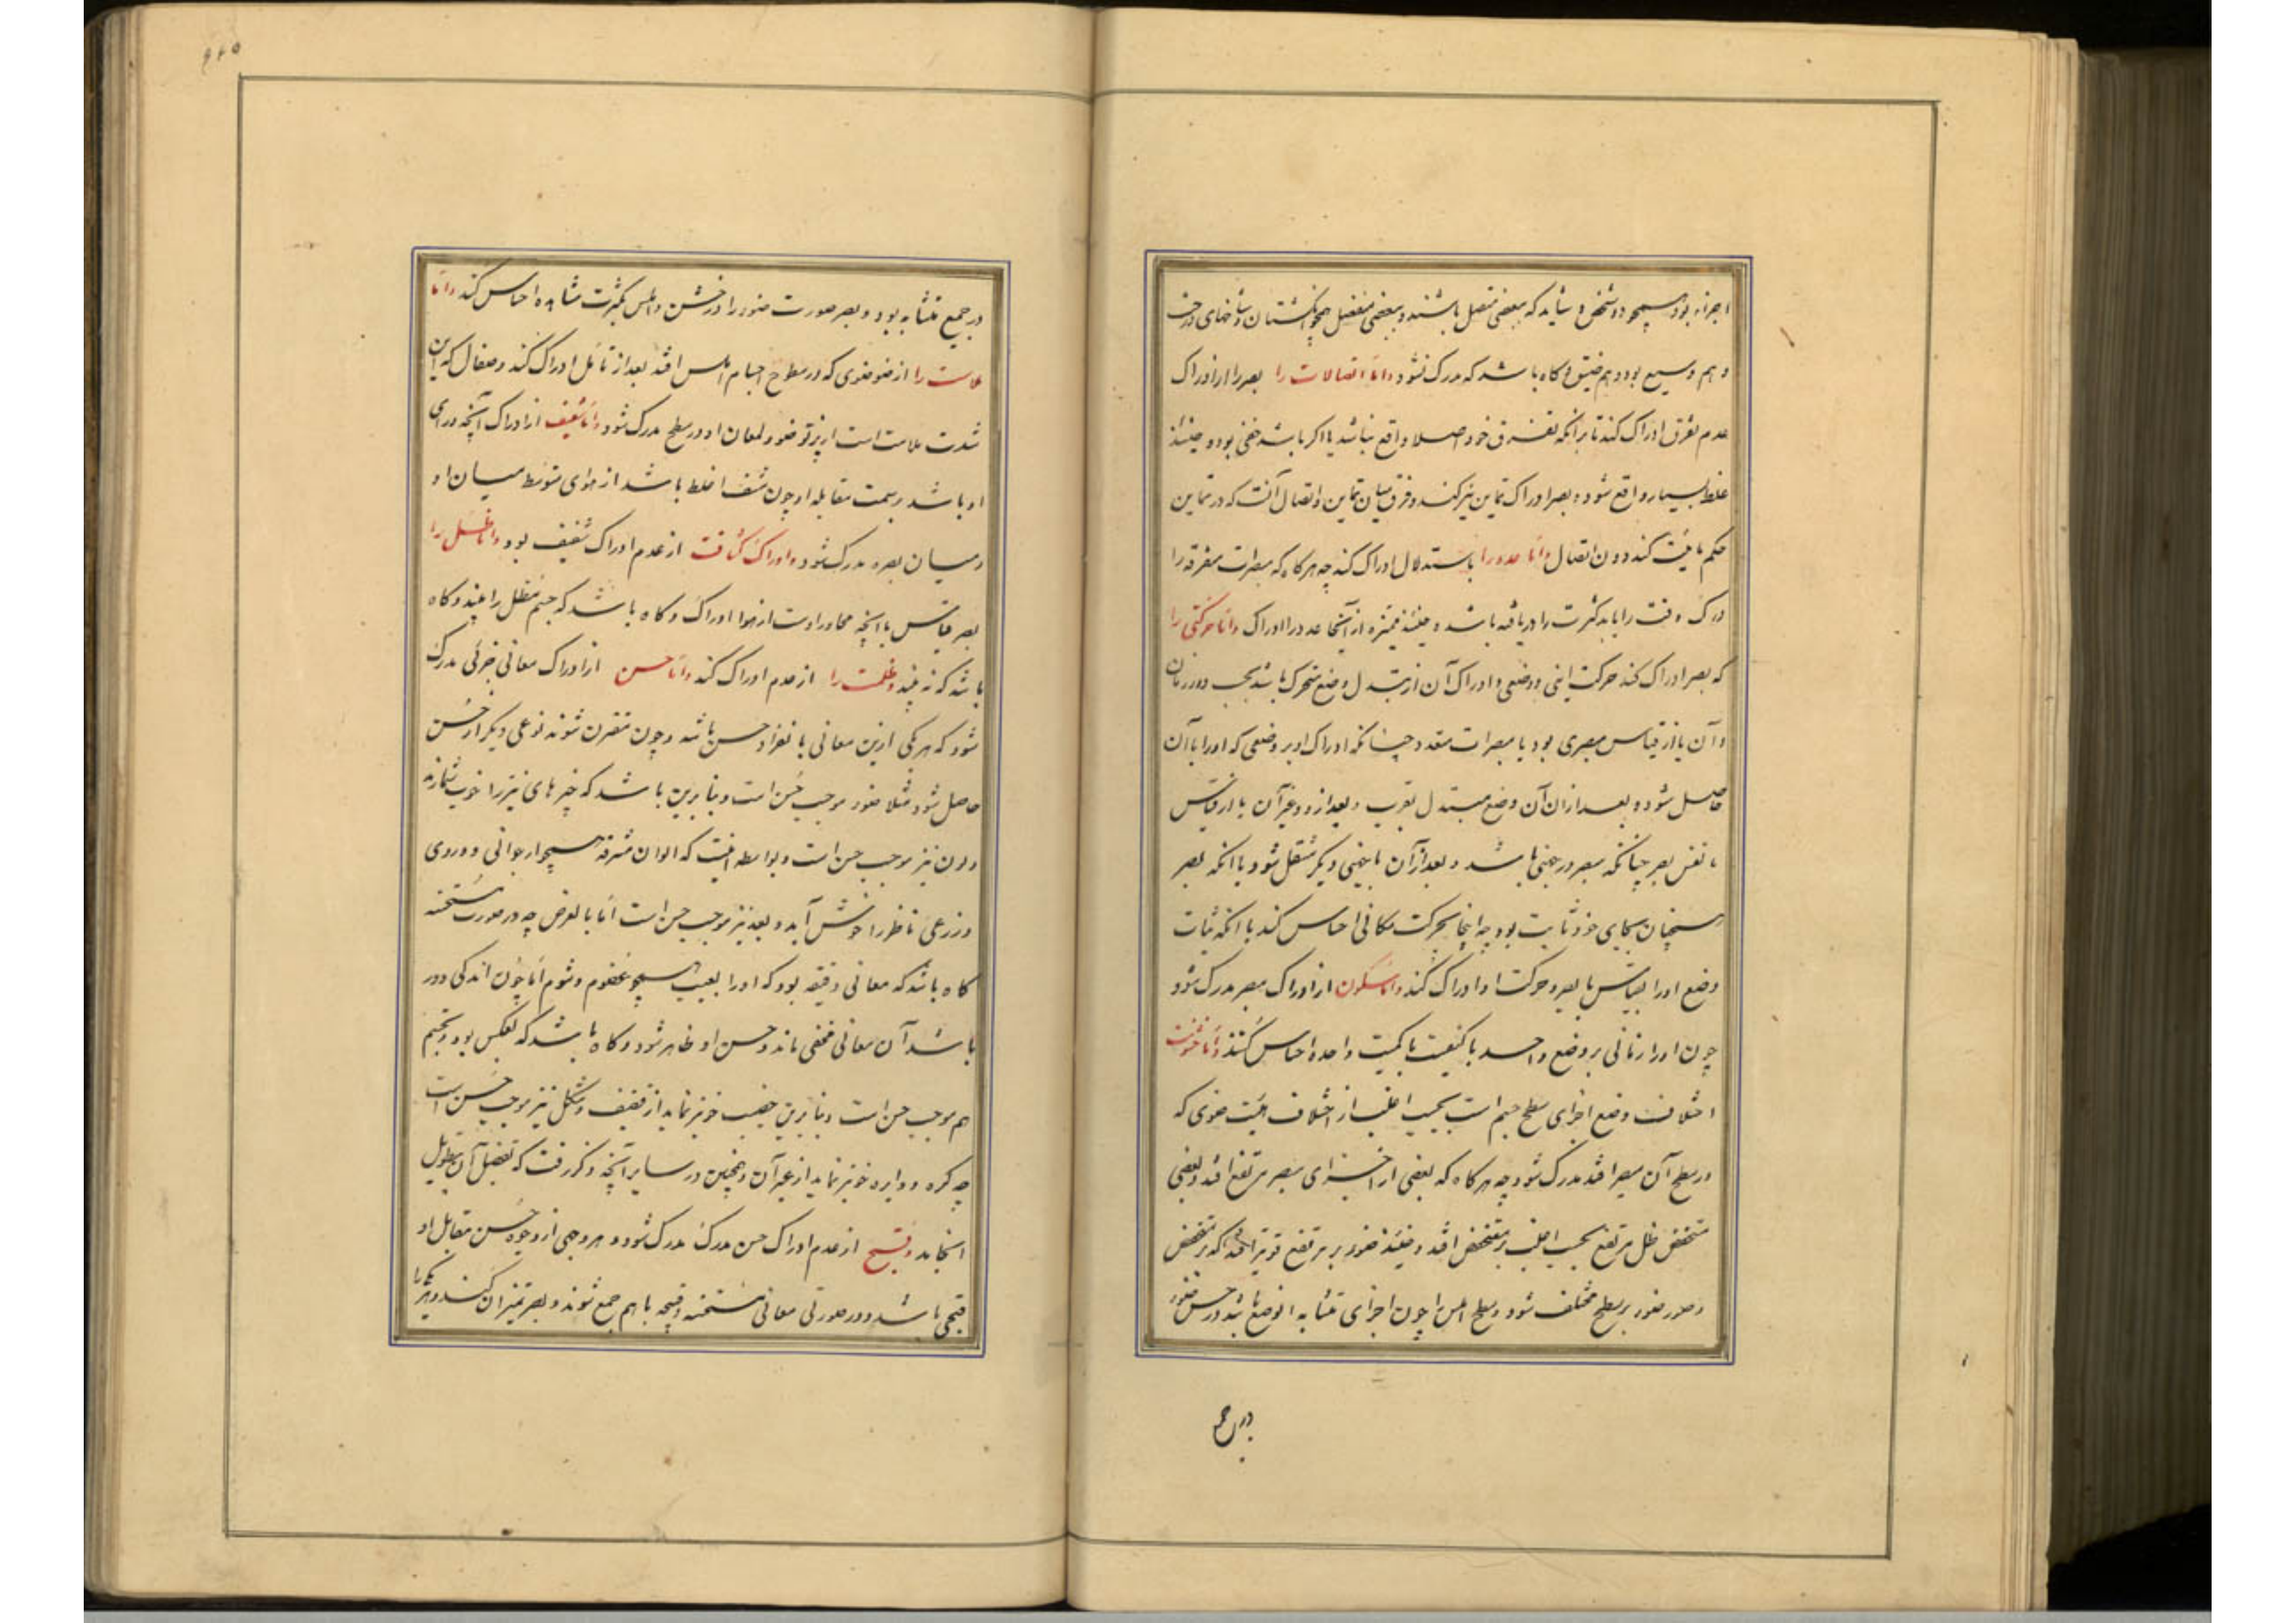 اجزاء بود همچو دو شخص و شاید که بعضی متصل باشند و بعضی منفصل همچو انگشتان و شاخهای درخت
و هم وسیع بود و هم ضیق و گاه باشد که مدرک نشود و اما اتصالات را بصر را از ادراک
عدم تفرق ادراک کند تا بر آنکه تفرق خود اصلا واقع نباشد یا اگر باشد خفی بود و حینئذ
غلط بسیار واقع شود و بصر ادراک تماس نیز کند و فرق میان تماس و اتصال آنست که در تماس
حکم باثنینیت کند دون اتصال و اما عدد را باستدلال ادراک کند چه هرگاه که مبصرات متفرقه را
درک وقت را باید کثرت را دریافته باشد و حینئذ ممیزه از آنجا عدد را ادراک و اما حرکتی را
که بصر ادراک کند حرکت اینی و وضعی و ادراک آن از تبدل وضع متحرک باشد بحسب دو زمان
و آن یا از قیاس مبصری بود با مبصرات متعدد چنانکه ادراک او بر وضعی که او را با آن
حاصل شود و بعد از آن آن وضع متبدل بقرب و بعد از و و غیر آن یا از قیاس
با نفس بصر چنانکه مبصر در جهتی باشد و بعد از آن با جهتی دیگر منتقل شود با آنکه بصر
همچنان بجای خود ثابت بود چه اینجا بحرکت مکانی احساس کند با آنکه ثبات
وضع او را بقیاس با بصر و حرکت او ادراک کند و اما سکون از ادراک مبصر مدرک شود
چون او را زمانی بر وضع واحد با کیفیت یا کمیت واحده احساس کند و اما خشونت
اختلاف وضع اجزای سطح جسم است بحسب اغلب از اختلاف هیئت ضوی که
در سطح آن مبصر افتد مدرک شود چه هرگاه که بعضی از اجزای مبصر مرتفع افتد و بعضی
منخفض ظل مرتفع بحسب اغلب بر منخفض افتد و حینئذ ضوء بر مرتفع قویتر افتد که بر منخفض
و صور ضوء بر سطح مختلف شود و سطح املس را چون اجزای متشابه الوضع باشد در حس ضوء
در جمیع
۹۲۵
در جمیع متشابه بود و بصر صورت ضوء را در خشن و املس بکثرت مشاهده احساس کند و اما
ملاست را از ضوء ضوی که در سطوح اجسام املس افتد بعد از تأمل ادراک کند و صقال که این
شدت ملاست است از پرتو ضوء و لمعان او در سطح مدرک شود و اما شفیف از ادراک آنچه ورای
او باشد و سمت مقابله او چون شفا غلظ باشد از هوای متوسط میان او
و میان بصر مدرک شود و ادراک کثافت از عدم ادراک شفیف بود و اما ظل را
بصر قیاس با آنچه مجاور اوست از هوا ادراک و گاه باشد که جسم مظل را بیند و گاه
باشد که نه بیند و ظلمت را از عدم ادراک کند و اما حسن از ادراک معانی جزئی مدرک
شود که هریکی از این معانی بانفراد حسن باشد و چون مقترن شوند نوعی دیگر از حسن
حاصل شود مثلا ضوء موجب حسن است و بنابرین باشد که چیزهای نیر را خوب شمارند
و لون نیز موجب حسن است و بواسطه اینست که الوان مشرقه همچو ارجوانی و وردی
و زرعی ناظر را خوش آید و بعد نیز موجب حسن است اما بالعرض چه در صورت مستحسنه
گاه باشد که معانی دقیقه بود که او را بعیب همچو غضون و وشوم اما چون اندکی دور
باشد آن معانی مخفی ماند و حسن او ظاهر شود و گاه باشد که بعکس بود و تجسم
هم موجب حسن است و بنابرین خصیب خوبتر نماید از قضیف و شکل نیز موجب حسن است
چه کره و دایره خوبتر نماید از غیر آن و همچنین در سایر آنچه ذکر رفت که تفصیل آن بتطویل
انجامد و قبح از عدم ادراک حسن مدرک مدرک شود و هر وجهی از وجوه حسن مقابل او
قبحی باشد و در صورتی معانی مستحسنه و قبیحه با هم جمع شوند و بصر تمیز آن کند و یکی را